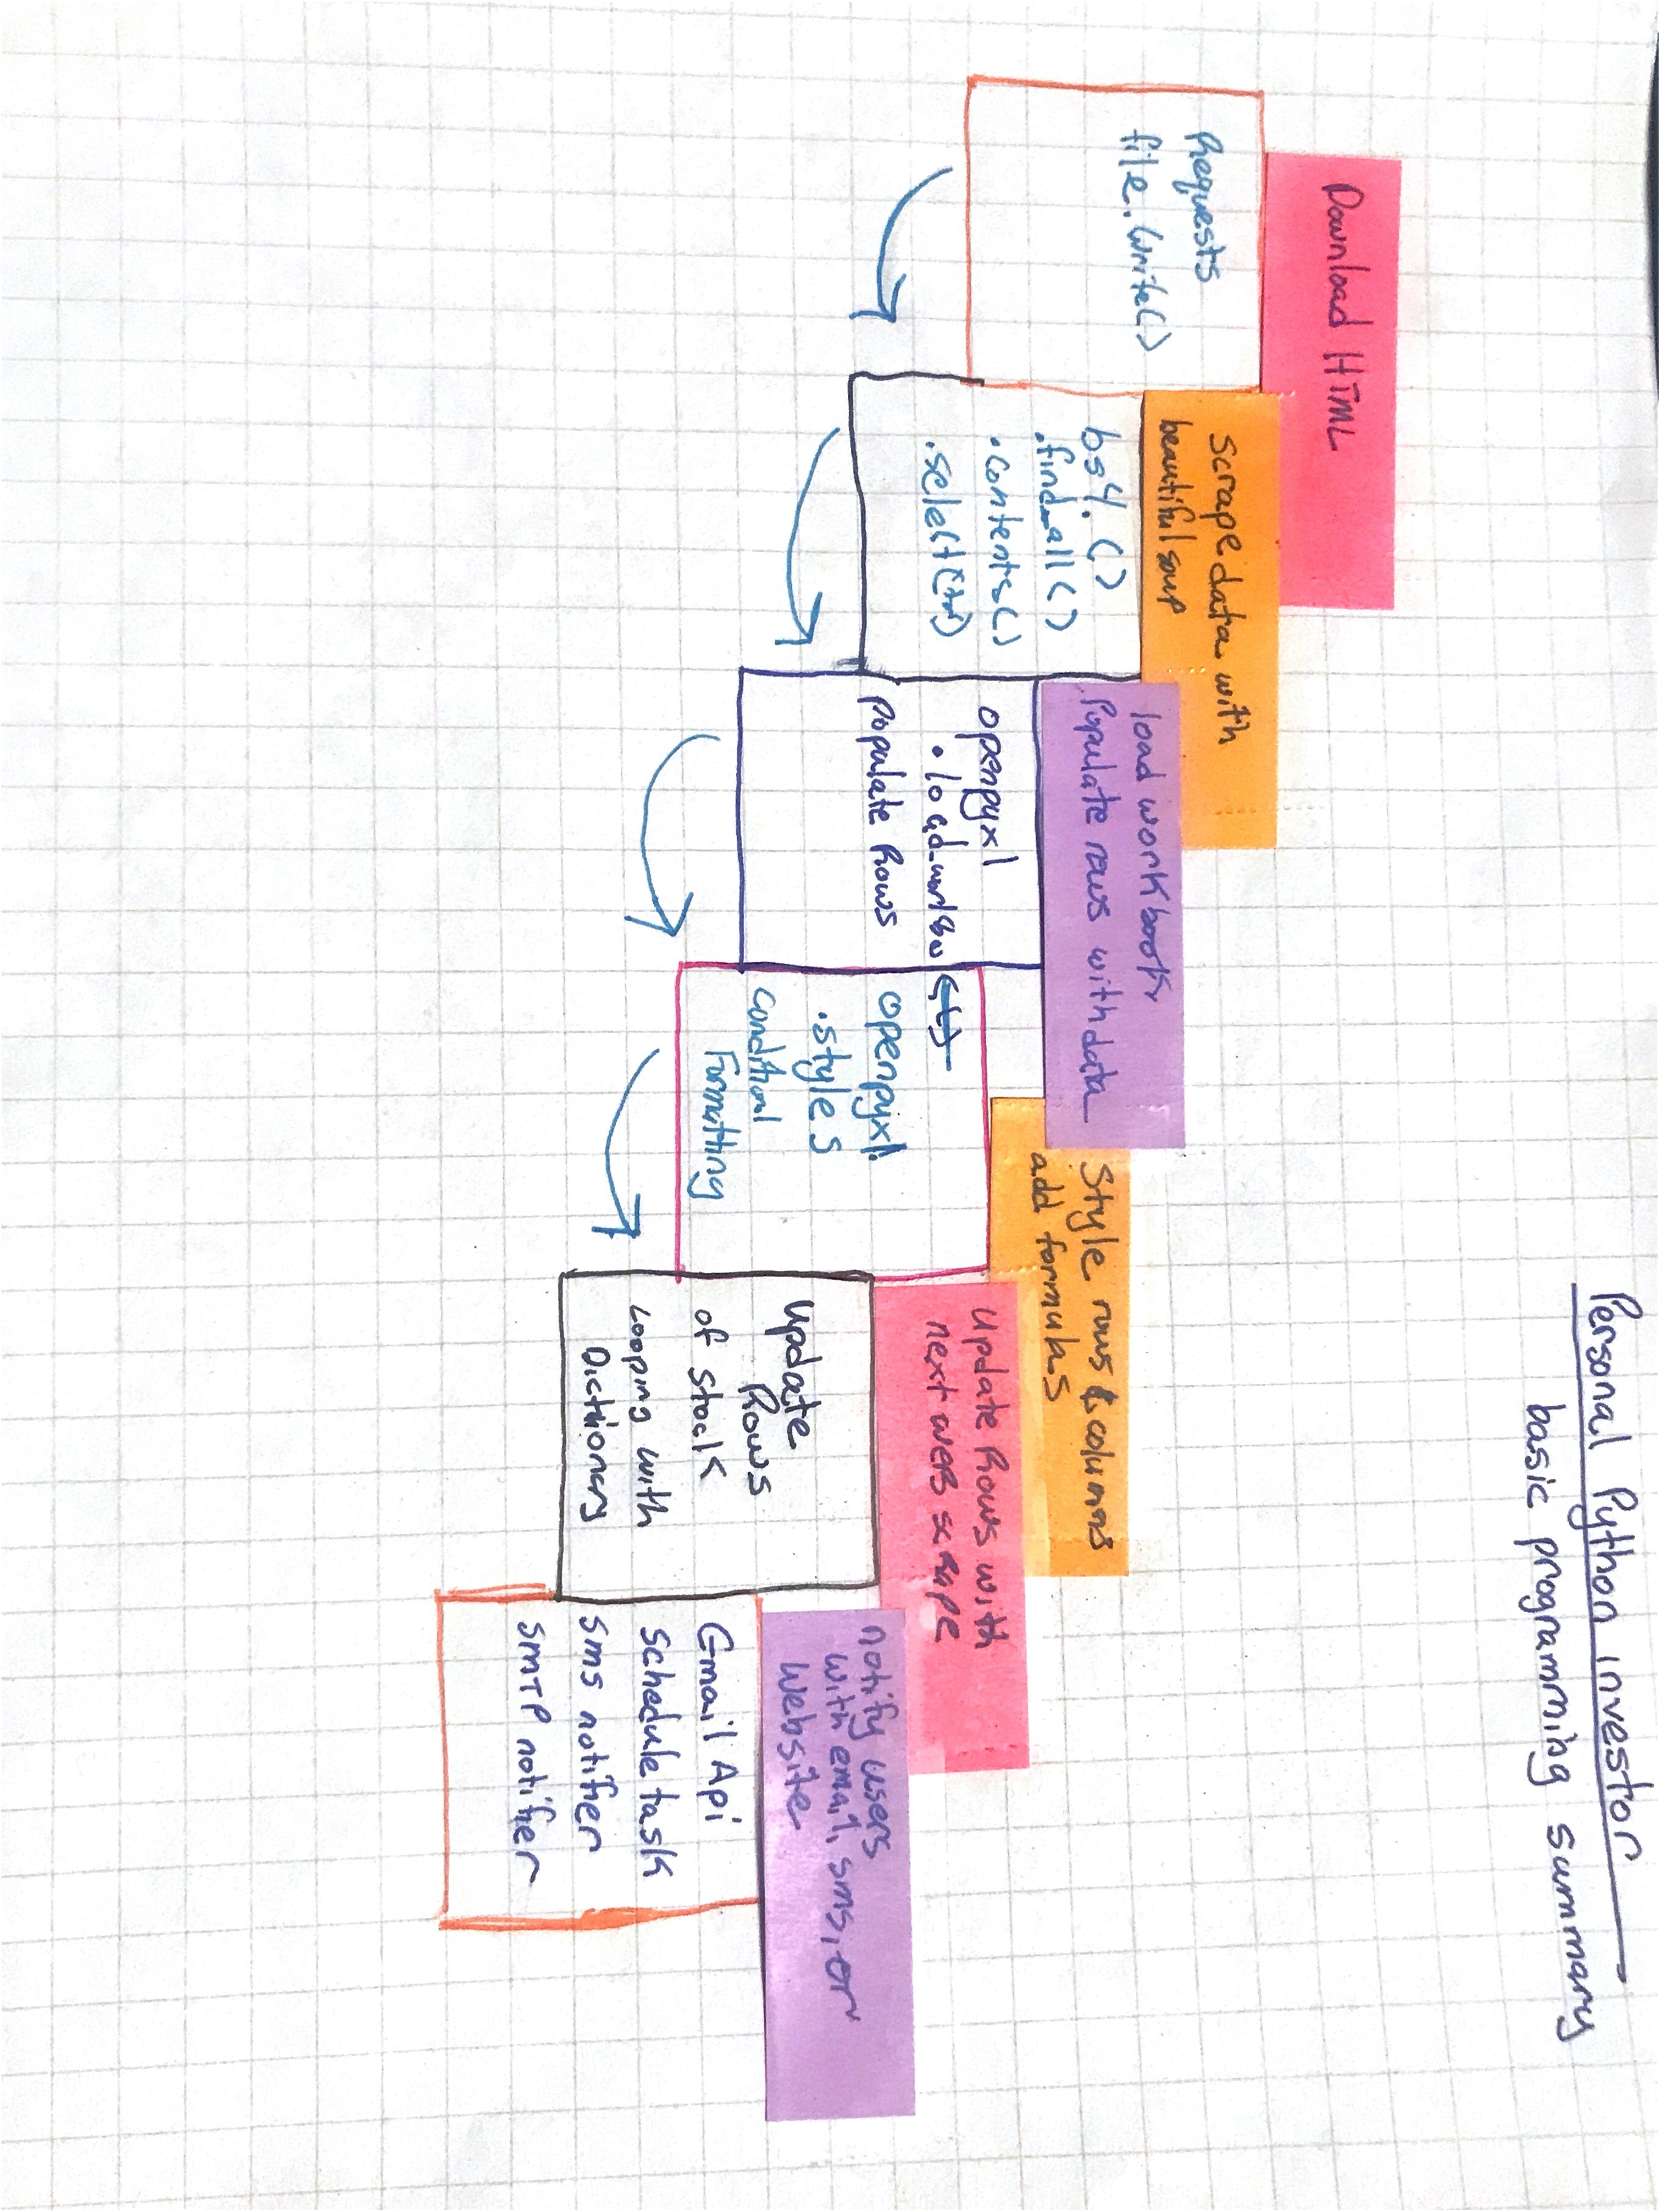 Personal Python investor
basic programming summary
Download HTML
Requests
file.write()
Scrape data with
beautiful soup
bs4.()
.find_all()
.contents()
.select()
load workbook,
Populate rows with data
openpyxl
.load_
Populate Rows
Style rows & columns
add formulas
openpyxl.
.styles
conditional
Formatting
Update Rows with
next WEB scrape
Update
Rows
of stock
Looping with
Dictionary
notify users
with email, sms, or
website
Gmail Api
schedule task
sms notifier
SMTP notifier